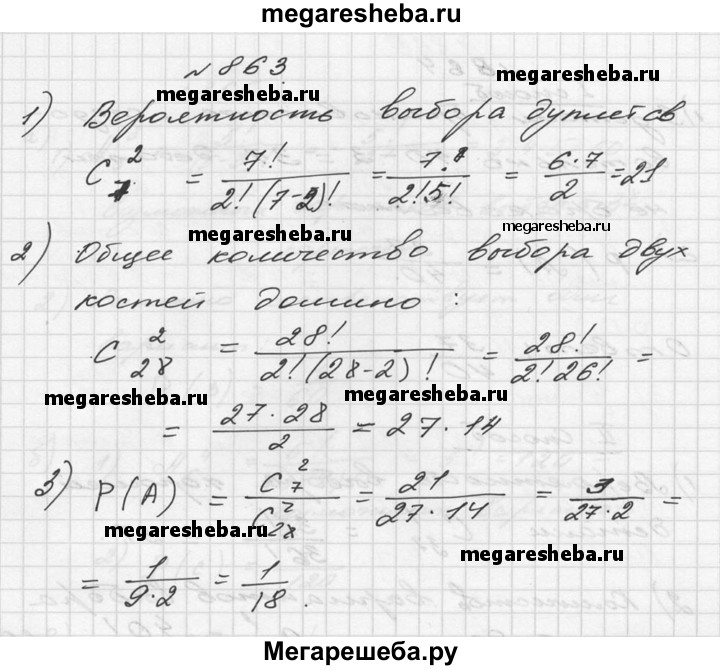 megaresheba.ru
№ 863
megaresheba.ru megaresheba.ru
1) Вероятность выбора дуплетов
C₇² = 7!/2!(7-2)! = 7!/2!5! = 6·7/2 = 21
megaresheba.ru megaresheba.ru
2) Общее количество выбора двух
костей домино:
C₂₈² = 28!/2!(28-2)! = 28!/2!26! =
megaresheba.ru megaresheba.ru
= 27·28/2 = 27·14
3) P(A) = C₇²/C₂₈² = 21/27·14 = 3/27·2 =
megaresheba.ru megaresheba.ru
= 1/9·2 = 1/18.
Мегарешеба.ру